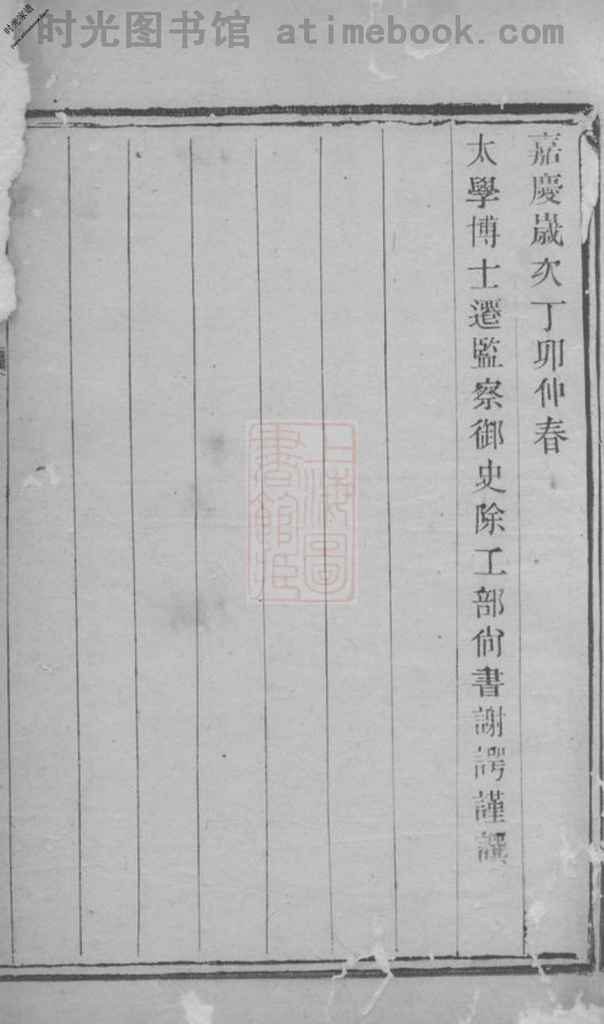 时光图书馆 atimebook.com
时光家谱
嘉慶歲次丁卯仲春
太學博士遷監察御史除工部尙書謝諤謹譔
上海圖
書館藏